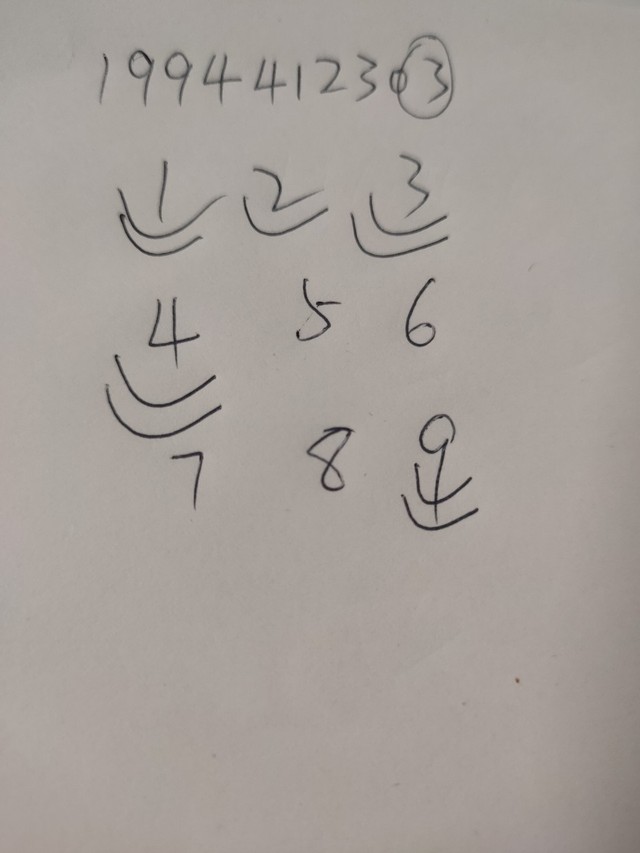 1994412303
1 2 3
4 5 6
7 8 9